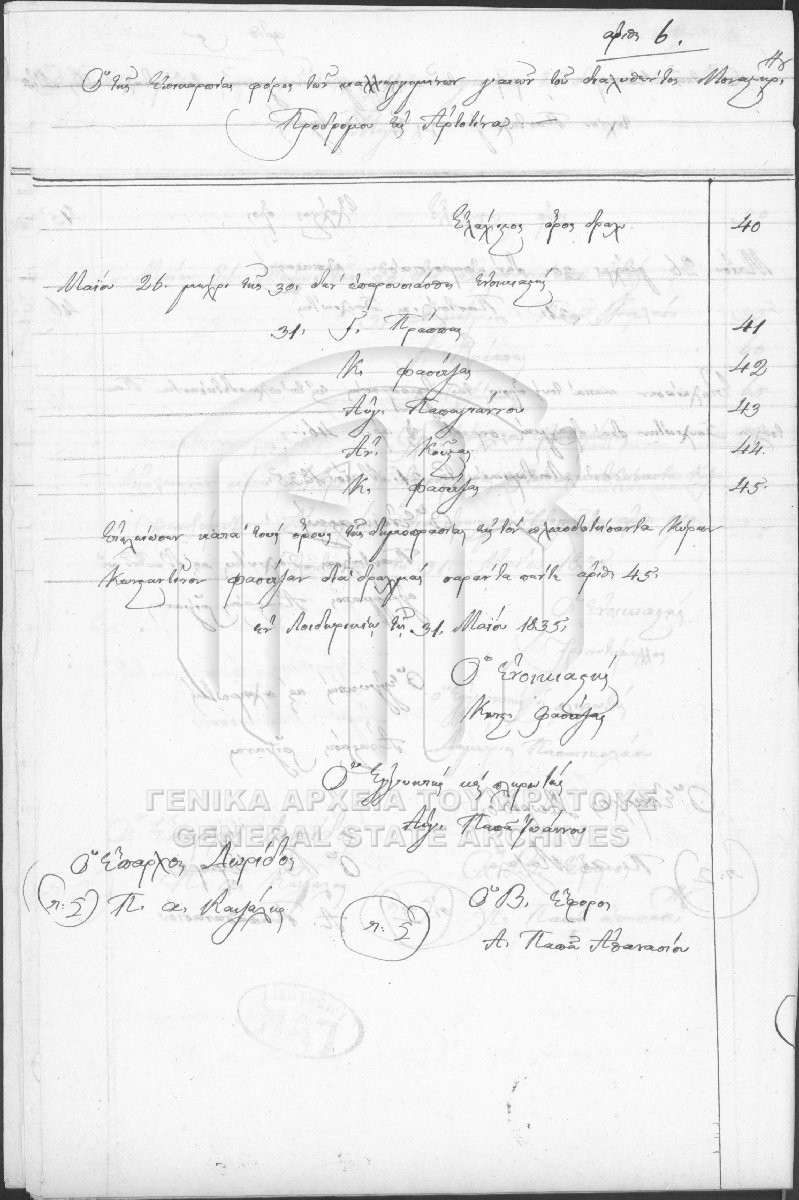 ἀριθ 6.
Ὁ τῆς Ἐπικαρπίας φόρος τῶν καλλιεργημένων γαιῶν τοῦ διαλυθέντος Μοναστηρ.
Προδρόμου τῆς Ἀρτοτίνα —
Ἐλάχιστος ὅρος δραχ. 40
Μαΐου 26. μέχρι τῆς 30. δὲν ἐπαρουσιάσθη Ἐνοικιαστής
31. Γ. Πράππας 41
Κ. Φασίτζας 42
Ἀγγ. Παπαγιάννου 43
Ἀν. Κούτζας 44.
Κ. Φασίτζας 45.
Ἐτελείωσεν κατὰ τοὺς ὅρους τῆς δημοπρασίας εἰς τὸν πλειοδοτίσαντα Κύριον
Κωνσταντῖνον Φασίτζαν διὰ δραχμάς σαράντα πέντε ἀριθ. 45.
ἐν Λοιδωρικίῳ τῇ 31. Μαΐου 1835.
Ὁ Ἐνοικιαστής
Κωνς. Φασίτζας
Ὁ Ἐγγυητής καὶ πληρωτής
Ἀγγ. Παπᾶ Ἰωάννου
Ὁ Ἔπαρχος Δωρίδος
Τ. Σ. Π. Α.
Τ. Σ.
Ὁ Β. Ἔφορος
Α. Παπᾶ Ἀθανασίου
ΓΕΝΙΚΑ ΑΡΧΕΙΑ ΤΟΥ ΚΡΑΤΟΥΣ
GENERAL STATE ARCHIVES